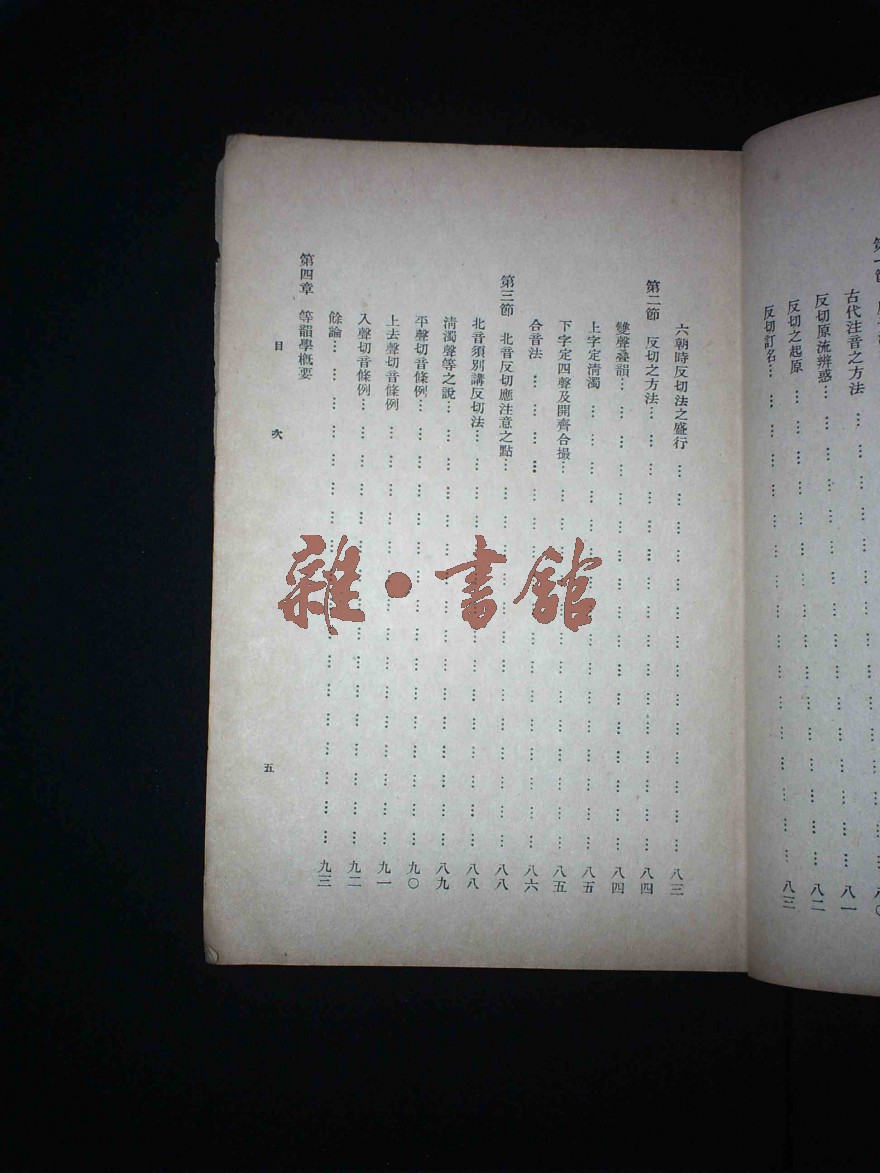 古代注音之方法 … … … … … … … … … … … … … 八一
反切原流辨惑… … … … … … … … … … … … … 八二
反切之起原 … … … … … … … … … … … … … 八二
反切訂名… … … … … … … … … … … … … … 八三
六朝時反切法之盛行 … … … … … … … … … … … 八三
第二節 反切之方法… … … … … … … … … … … … 八四
雙聲叠韻… … … … … … … … … … … … … 八四
上字定淸濁 … … … … … … … … … … … … 八五
下字定四聲及開齊合撮… … … … … … … … … … … 八五
合音法 … … … … … … … … … … … … … 八六
第三節 北音反切應注意之點… … … … … … … … … … 八八
北音須別講反切法… … … … … … … … … … … … 八八
淸濁聲等之說… … … … … … … … … … … … 八九
平聲切音條例… … … … … … … … … … … … 九〇
上去聲切音條例 … … … … … … … … … … … 九一
入聲切音條例… … … … … … … … … … … … 九二
餘論… … … … … … … … … … … … … … 九三
第四章 等韻學槪要
目 次
五
雜·書館